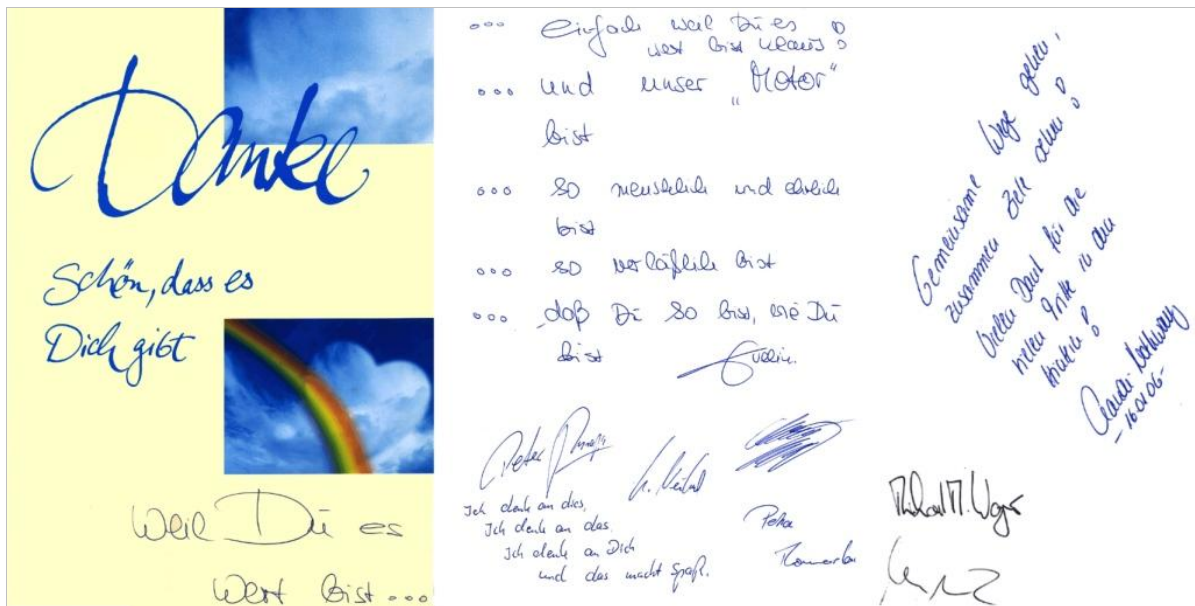 Danke
Schön, dass es
Dich gibt
Weil Du es
Wert bist...
... einfach weil Du es
wert bist Klaus!
... und unser „Motor“
bist
... so menschlich und ehrlich
bist
... so verläßlich bist
... daß Du so bist, wie Du
bist
Peter
Ich denk an dies,
Ich denk an das,
Ich denk an Dich
und das macht Spaß.
Petra
Gemeinsame Wege gehen,
zusammen Ziele sehen!
Vielen Dank für die
vielen Tritte in den
Hintern!
-16.01.06-